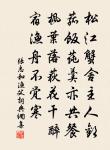 松江蟹舍主人歡
菰飯蓴羹亦共餐
楓葉落荻花乾醉
宿漁舟不覺寒
張志和漁父詞